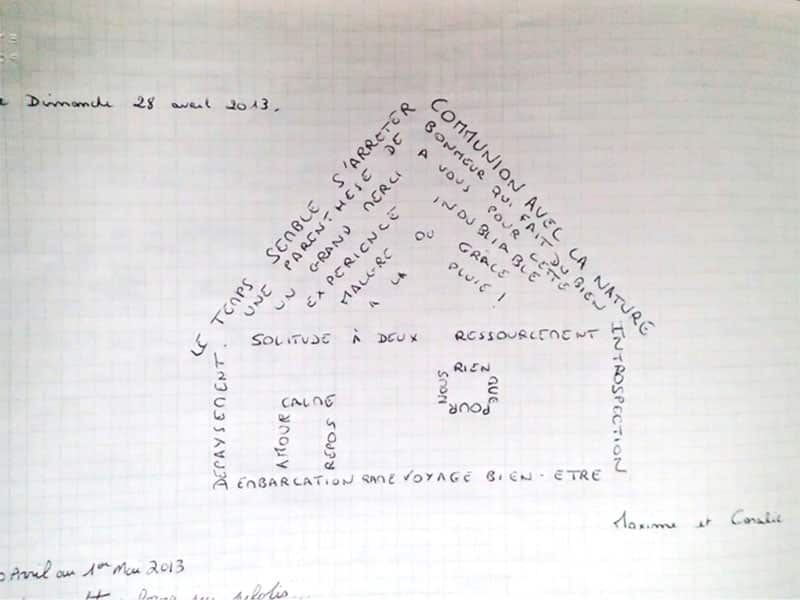 Dimanche 28 avril 2013.
LE TEMPS SEMBLE S'ARRETER
COMMUNION AVEC LA NATURE
UNE PARENTHESE DE
BONHEUR QUI FAIT DU BIEN
UN GRAND MERCI
A VOUS POUR CETTE
EXPERIENCE
INOUBLIABLE
MALGRE OU GRÂCE
A LA PLUIE !
SOLITUDE À DEUX RESSOURCEMENT
DEPAYSEMENT.
INTROSPECTION
AMOUR CALME REPOS
RIEN QUE POUR NOUS
EMBARCATION RAME VOYAGE BIEN-ETRE
Maxime et Coralie
Avril au 1er Mai 2013